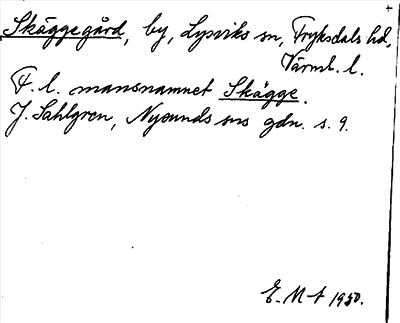 Skäggegård, by, Lysviks sn, Fryksdals hd,
Värml. l.
F. l. mansnamnet Skägge.
J. Sahlgren, Nysunds sns gdn. s. 9.
E. M-t 1950.